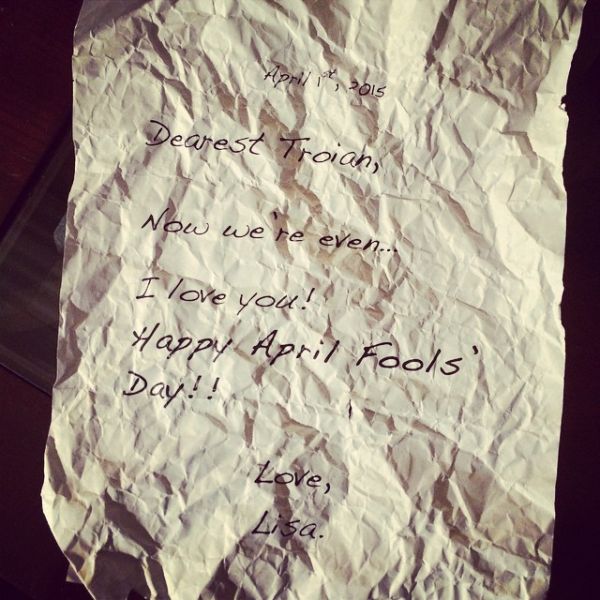 April 1st, 2015
Dearest Troian,
Now we're even...
I love you!
Happy April Fools'
Day!!
Love,
Lisa.